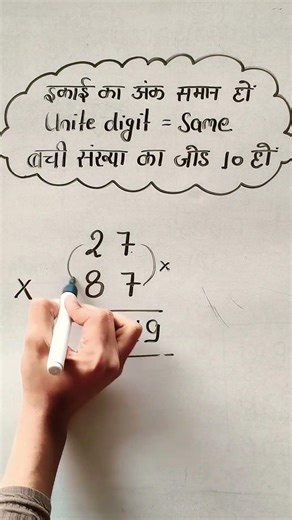 इकाई का अंक समान हों
Unite digit = Same
बची संख्या का जोड 10 हों
2 7
x 8 7 x
9